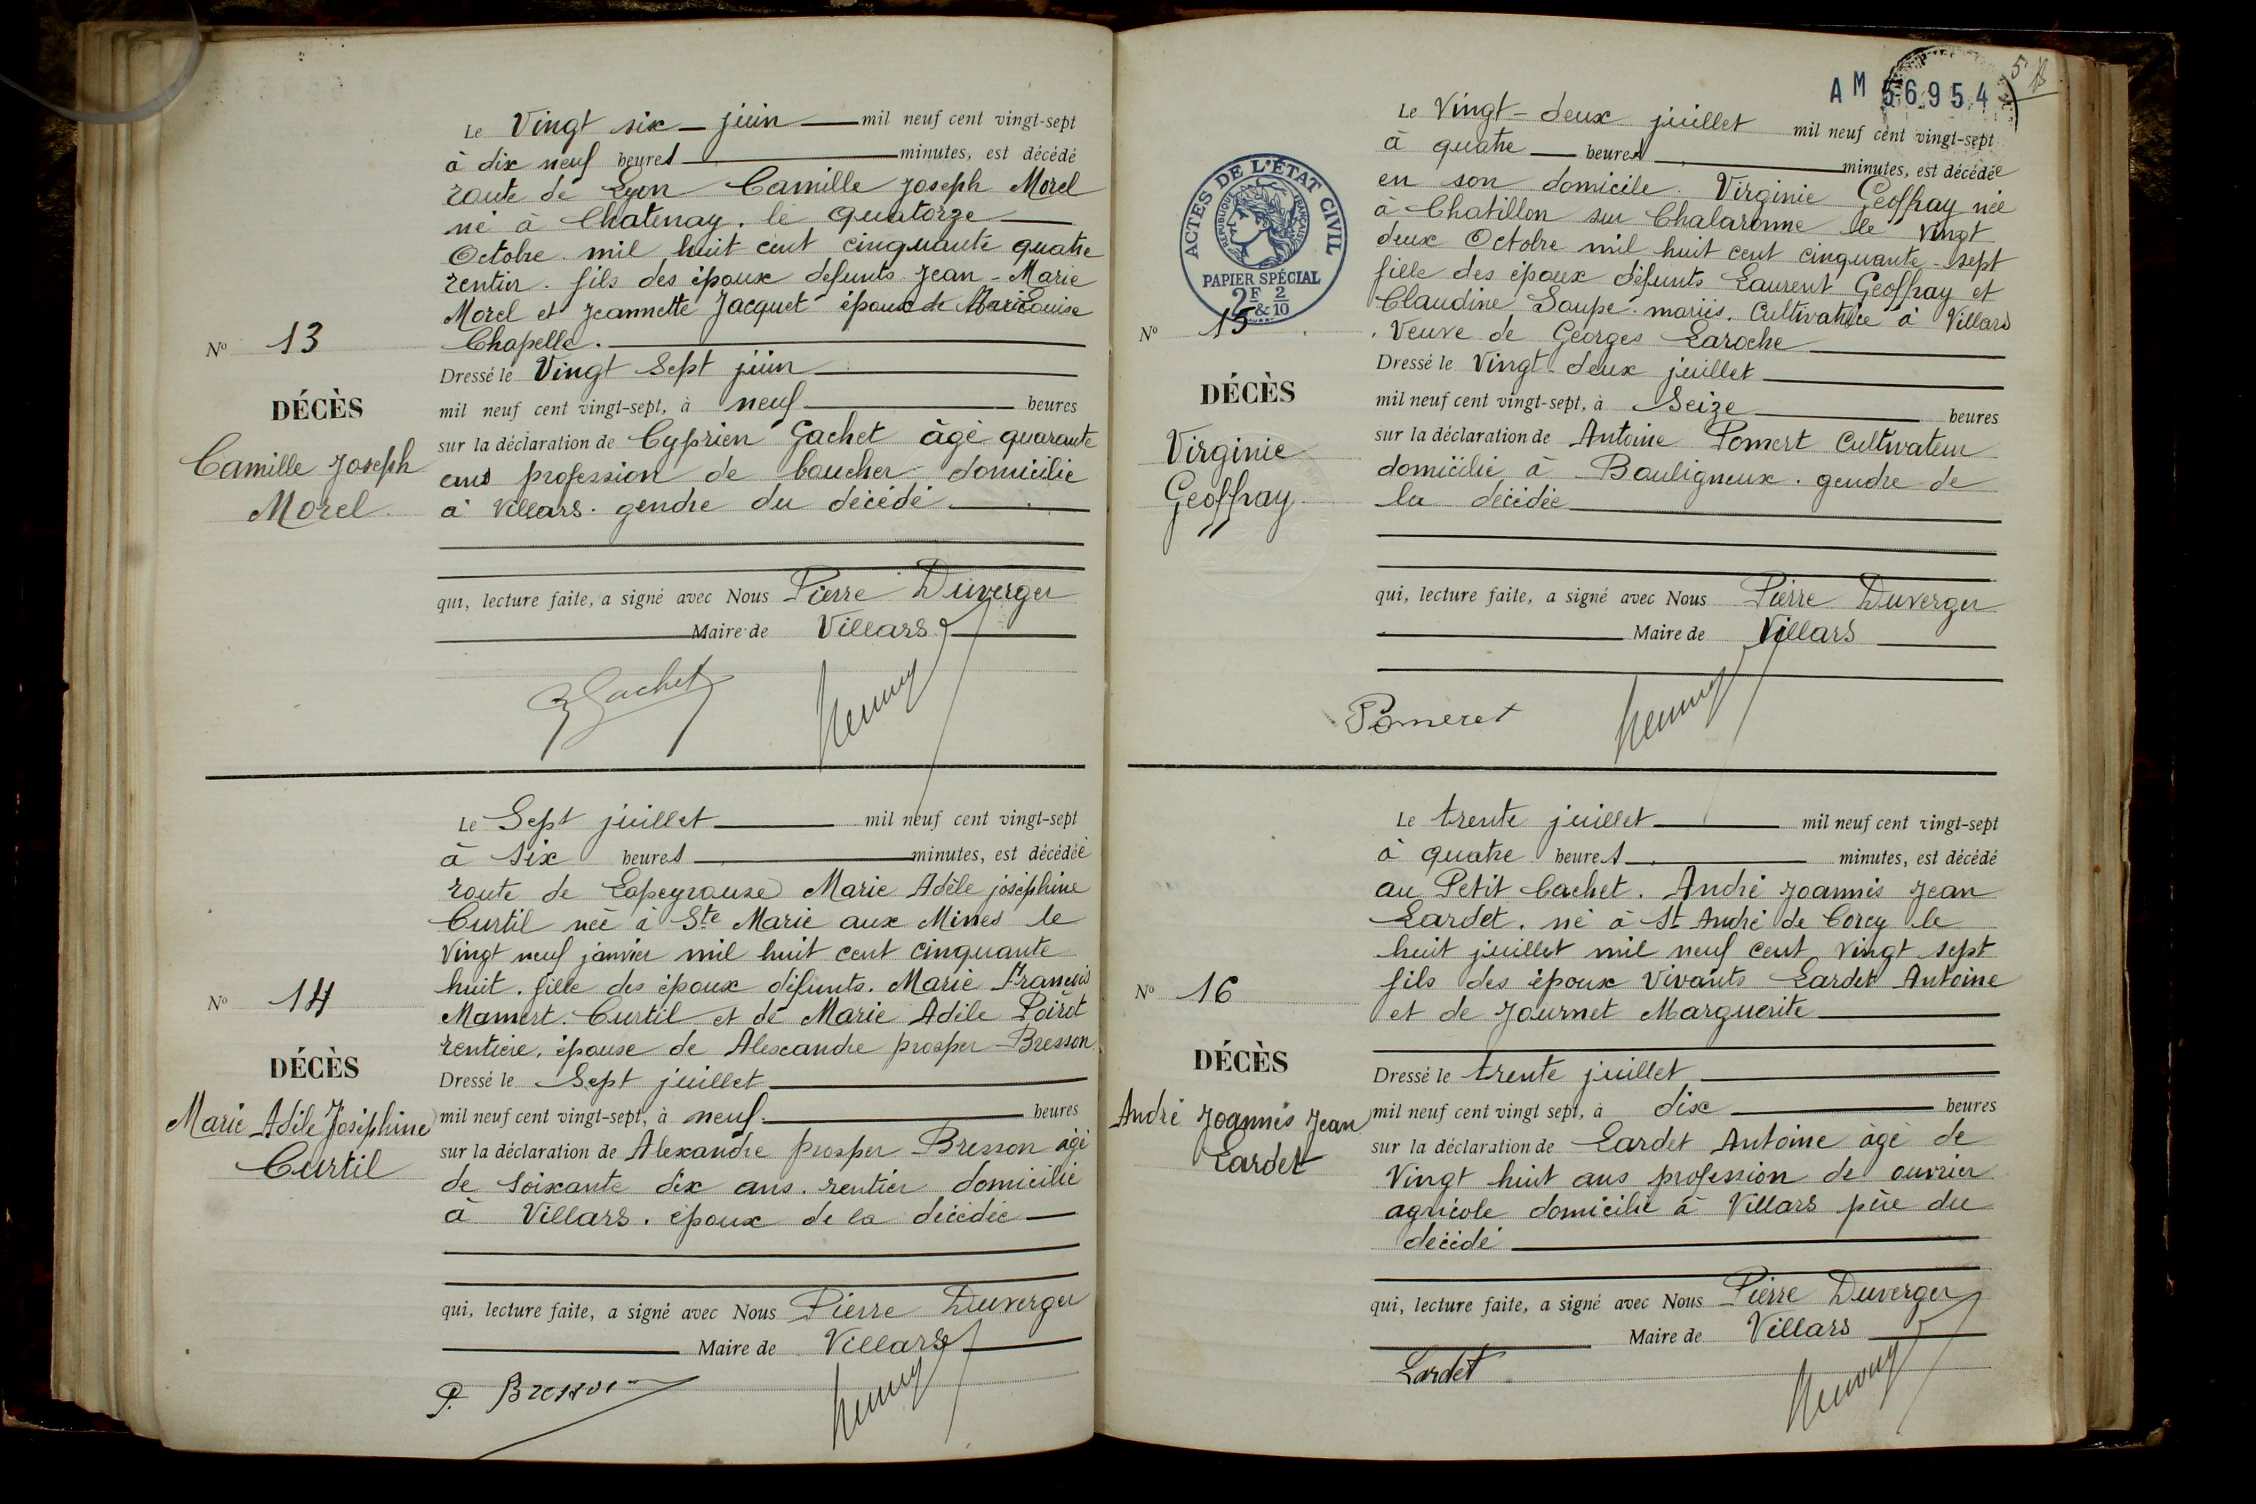 Le Vingt six juin mil neuf cent vingt-sept
à dix neuf heures minutes, est décédé
route de Lyon Camille Joseph Morel
né à Chatenay, le quatorze
Octobre mil huit cent cinquante quatre
rentier. fils des époux défunts Jean-Marie
Morel et Jeannette Jacquet époux de Marie Louise
Chapelle.
Nº 13
DÉCÈS
Camille Joseph
Morel
Dressé le Vingt Sept juin
mil neuf cent vingt-sept, à neuf heures
sur la déclaration de Cyprien Gachet âgé quarante
ans profession de boucher domicilié
à Villars. gendre du décédé
qui, lecture faite, a signé avec Nous Pierre Duverger
Maire de Villars
Gachet
Le Sept juillet mil neuf cent vingt-sept
à six heures minutes, est décédée
route de Lapeyrouse Marie Adèle joséphine
Curtil née à Ste Marie aux Mines le
Vingt neuf janvier mil huit cent cinquante
huit. fille des époux défunts. Marie François
Mamert. Curtil et de Marie Adèle Poirot
rentière. épouse de Alexandre prosper Bresson
Nº 14
DÉCÈS
Marie Adèle Joséphine
Curtil
Dressé le Sept juillet
mil neuf cent vingt-sept, à neuf heures
sur la déclaration de Alexandre prosper Bresson âgé
de soixante dix ans. rentier domicilié
à Villars. époux de la décédée
qui, lecture faite, a signé avec Nous Pierre Duverger
Maire de Villars
P. Bresson
AM 56954
5
Le Vingt-deux juillet mil neuf cent vingt-sept
à quatre heures minutes, est décédée
en son domicile. Virginie Geoffray née
à Chatillon sur Chalaronne le vingt
deux Octobre mil huit cent cinquante-sept
fille des époux défunts Laurent Geoffray et
Claudine Soupe. mariés. Cultivatrice à Villars
. Veuve de Georges Laroche
ACTES DE L'ÉTAT CIVIL
RÉPUBLIQUE FRANÇAISE
PAPIER SPÉCIAL
2F & 2/10
Nº 15
DÉCÈS
Virginie
Geoffray
Dressé le Vingt-deux juillet
mil neuf cent vingt-sept, à Seize heures
sur la déclaration de Antoine Pomert Cultivateur
domicilié à Bouligneux. gendre de
la décédée
qui, lecture faite, a signé avec Nous Pierre Duverger
Maire de Villars
Pomeret
Le trente juillet mil neuf cent vingt-sept
à quatre heures minutes, est décédé
au Petit Cachet. André Joannès Jean
Lardet. né à St André de Corcy le
huit juillet mil neuf cent vingt sept
fils des époux vivants Lardet Antoine
et de Journet Marguerite
Nº 16
DÉCÈS
André Joannès Jean
Lardet
Dressé le trente juillet
mil neuf cent vingt sept, à dix heures
sur la déclaration de Lardet Antoine âgé de
Vingt huit ans profession de ouvrier
agricole domicilié à Villars père du
décédé
qui, lecture faite, a signé avec Nous Pierre Duverger
Maire de Villars
Lardet